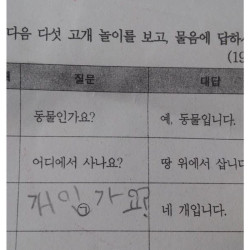 다음 다섯 고개 놀이를 보고, 물음에 답하
(19
질문 대답
동물인가요? 예, 동물입니다.
어디에서 사나요? 땅 위에서 삽니다
개인가요? 네 개입니다.